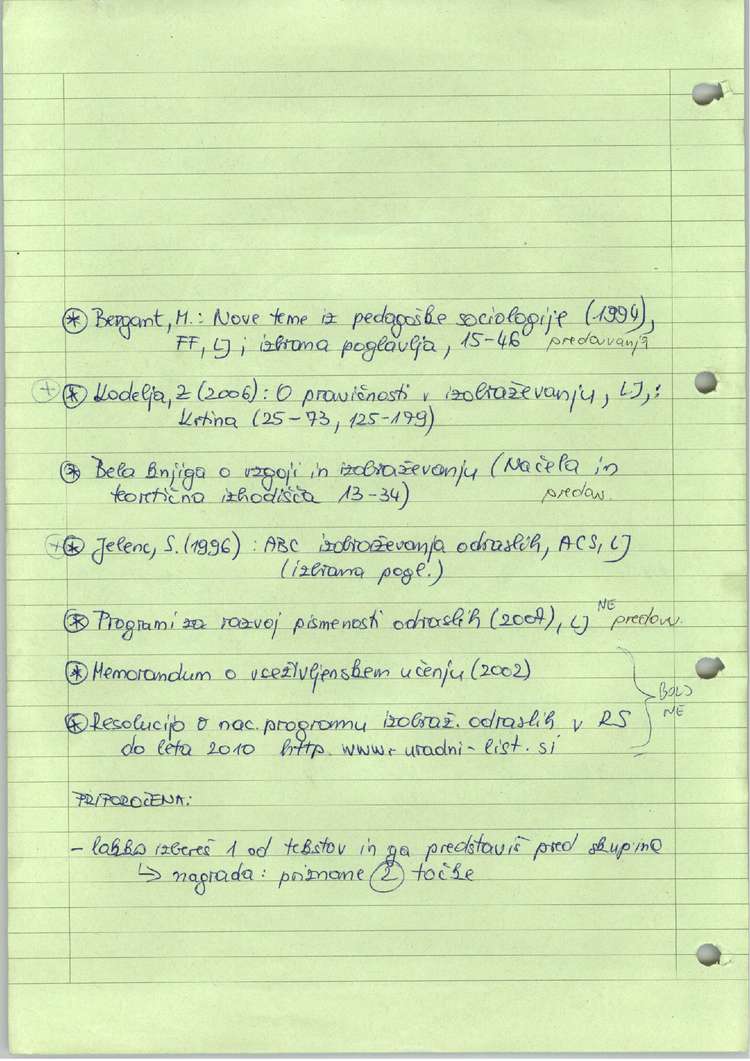 * Bergant, M.: Nove teme iz pedagoške sociologije (1994),
FF, LJ; izbrana poglavja, 15-46 predavanja
+ * Kodelja, Z (2006): O pravičnosti v izobraževanju, LJ,:
Krtina (25-73, 125-179)
* Bela knjiga o vzgoji in izobraževanju (Načela in
teoretična izhodišča 13-34) predav.
+ * Jelenc, S. (1996): ABC izobraževanja odraslih, ACS, LJ
(izbrana pogl.)
* Programi za razvoj pismenosti odraslih (2004), LJ NE predav.
* Memorandum o vseživljenskem učenju (2002)
* Resolucijo o nac. programu izobraž. odraslih v RS
do leta 2010 http. www. uradni-list.si
BOLJ
NE
PRIPOROČENA:
- lahko izbereš 1 od tekstov in ga predstaviš pred skupino
↳ nagrada: priznane 2 točke